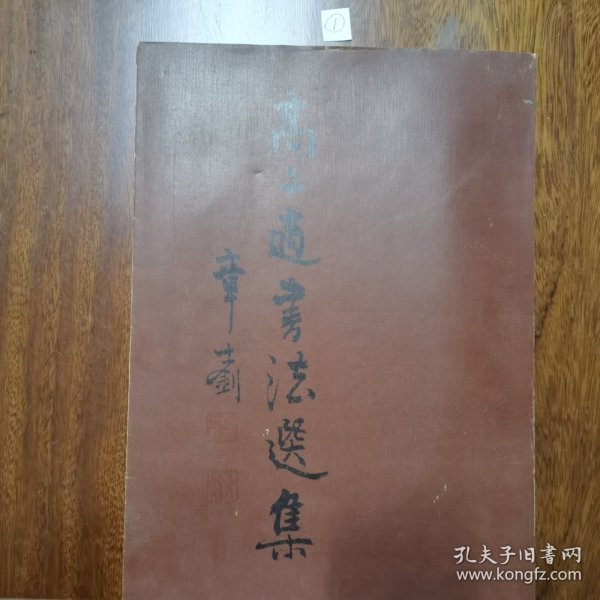 ①
高二適書法選集
章士釗
孔夫子旧书网
www.kongfz.com